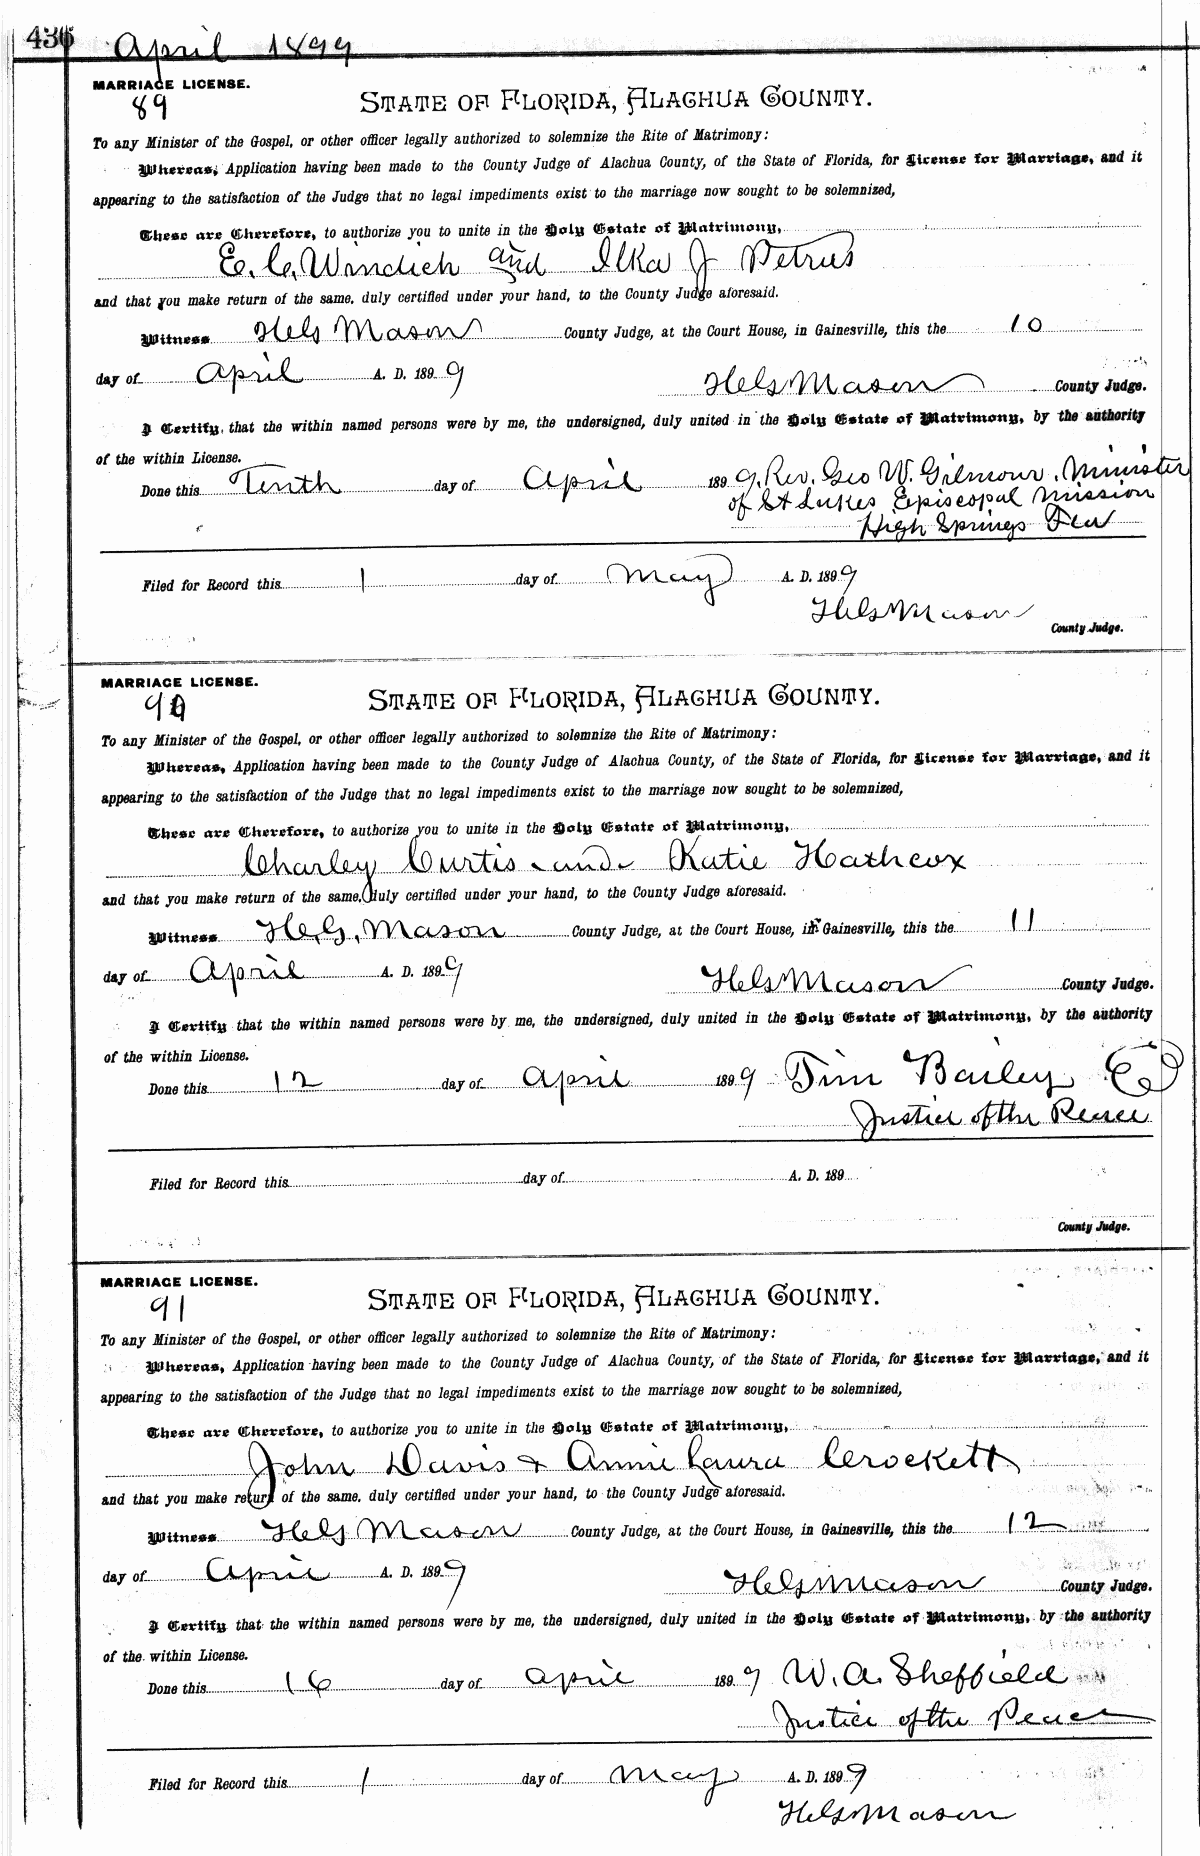 436 April 1899
MARRIAGE LICENSE.
89
STATE OF FLORIDA, ALACHUA COUNTY.
To any Minister of the Gospel, or other officer legally authorized to solemnize the Rite of Matrimony:
Whereas, Application having been made to the County Judge of Alachua County, of the State of Florida, for License for Marriage, and it
appearing to the satisfaction of the Judge that no legal impediments exist to the marriage now sought to be solemnized,
These are Therefore, to authorize you to unite in the Holy Estate of Matrimony,
E. C. Windich and Ilka J Petrus
and that you make return of the same, duly certified under your hand, to the County Judge aforesaid.
Witness H.G. Mason County Judge, at the Court House, in Gainesville, this the 10
day of April A. D. 1899 H.G. Mason County Judge.
I Certify that the within named persons were by me, the undersigned, duly united in the Holy Estate of Matrimony, by the authority
of the within License.
Done this Tenth day of April 1899. Rev. Geo W. Gilmour. Minister
of St Lukes Episcopal Mission
High Springs Fla
Filed for Record this 1 day of May A. D. 1899
H.G. Mason
County Judge.
MARRIAGE LICENSE.
90
STATE OF FLORIDA, ALACHUA COUNTY.
To any Minister of the Gospel, or other officer legally authorized to solemnize the Rite of Matrimony:
Whereas, Application having been made to the County Judge of Alachua County, of the State of Florida, for License for Marriage, and it
appearing to the satisfaction of the Judge that no legal impediments exist to the marriage now sought to be solemnized,
These are Therefore, to authorize you to unite in the Holy Estate of Matrimony,
Charley Curtis and Katie Hathcox
and that you make return of the same, duly certified under your hand, to the County Judge aforesaid.
Witness H.G. Mason County Judge, at the Court House, in Gainesville, this the 11
day of April A. D. 1899 H.G. Mason County Judge.
I Certify that the within named persons were by me, the undersigned, duly united in the Holy Estate of Matrimony, by the authority
of the within License.
Done this 12 day of April 1899 Tim Bailey
Justice of the Peace
Filed for Record this day of A. D. 189
County Judge.
MARRIAGE LICENSE.
91
STATE OF FLORIDA, ALACHUA COUNTY.
To any Minister of the Gospel, or other officer legally authorized to solemnize the Rite of Matrimony:
Whereas, Application having been made to the County Judge of Alachua County, of the State of Florida, for License for Marriage, and it
appearing to the satisfaction of the Judge that no legal impediments exist to the marriage now sought to be solemnized,
These are Therefore, to authorize you to unite in the Holy Estate of Matrimony,
John Davis & Annie Laura Crockett
and that you make return of the same, duly certified under your hand, to the County Judge aforesaid.
Witness H.G. Mason County Judge, at the Court House, in Gainesville, this the 12
day of April A. D. 1899 H.G. Mason County Judge.
I Certify that the within named persons were by me, the undersigned, duly united in the Holy Estate of Matrimony, by the authority
of the within License.
Done this 16 day of April 1899 W. A. Sheffield
Justice of the Peace
Filed for Record this 1 day of May A. D. 1899
H.G. Mason